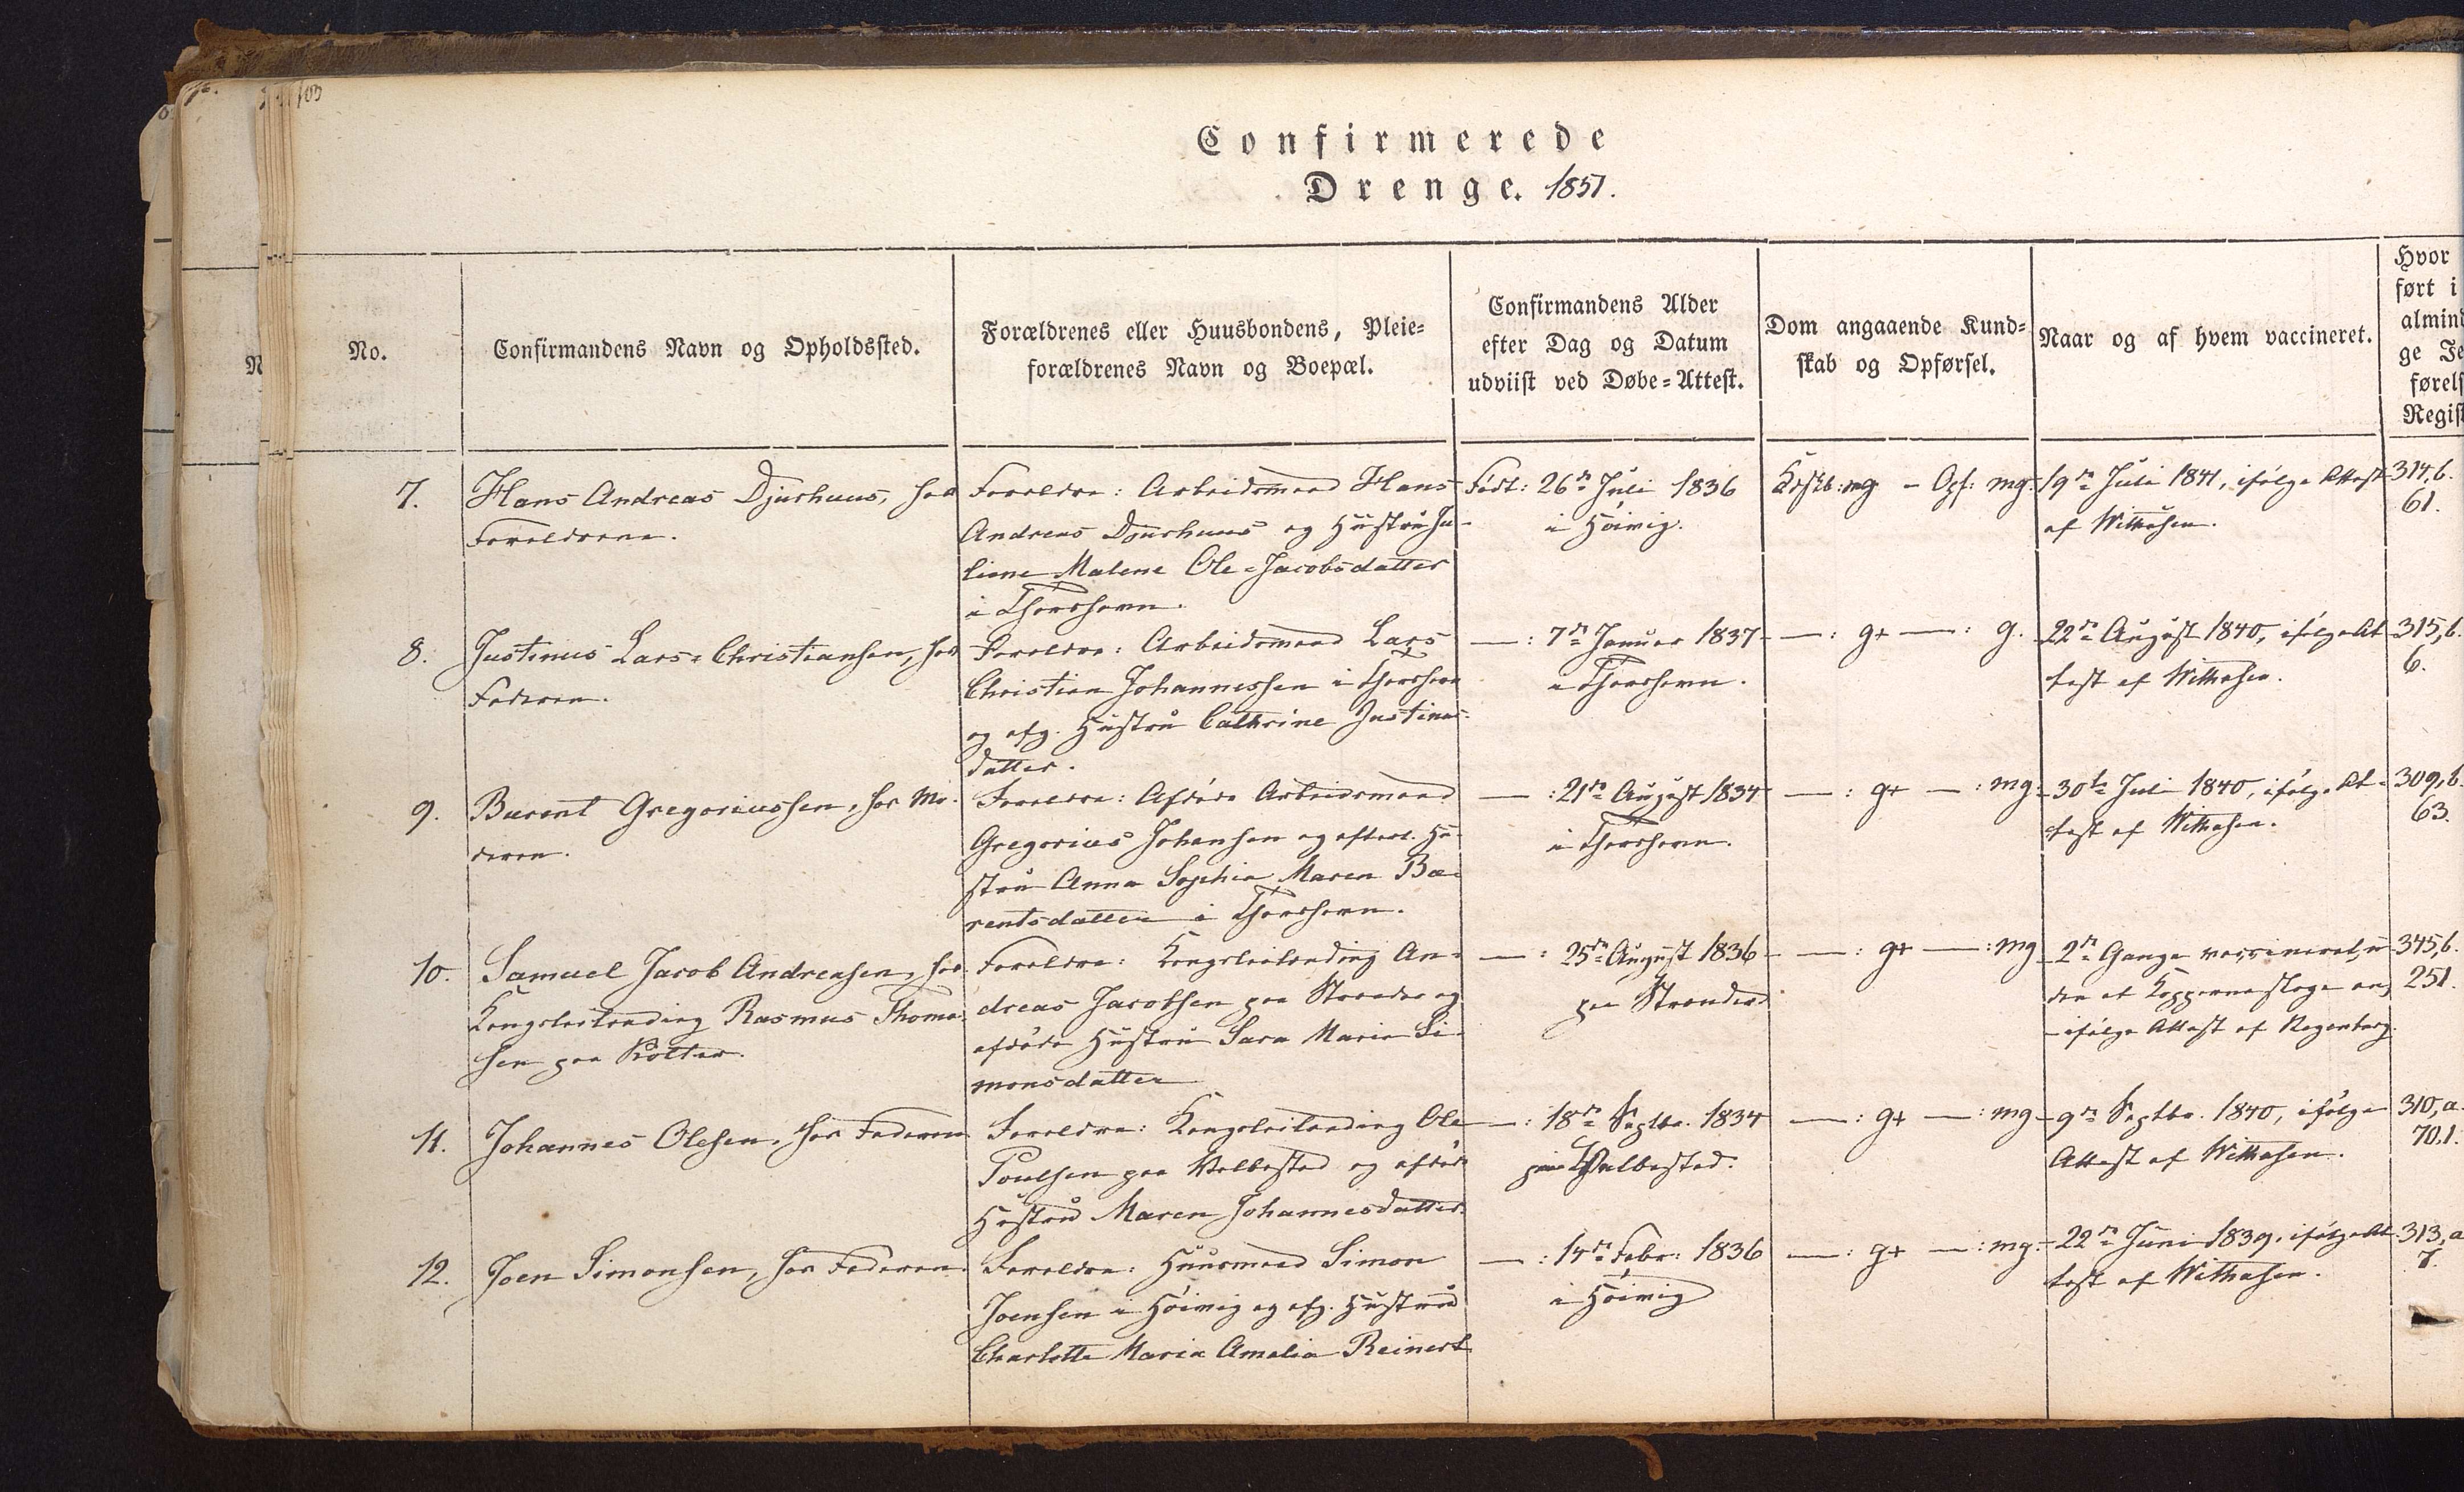 103
Confirmerede
Drenge. 1851.
No.
Confirmandens Navn og Opholdssted.
Forældrenes eller Huusbondens, Pleie=
forældrenes Navn og Boepæl.
Confirmandens Alder
efter Dag og Datum
udviist ved Døbe=Attest.
Dom angaaende Kund=
skab og Opførsel.
Naar og af hvem vaccineret.
Hvor
ført i
almind
ge Je
førels
Regist
7.
Hans Andreas Djurhuus, hos
Forældrene.
Forældre: Arbeidsmand Hans
Andreas Djurhuus og Hustru Ju-
liane Malene Ole=Jacobsdatter
i Thorshavn.
Født: 26de Juli 1836
i Høivig.
Kdskb: mg - Opf: mg.
19de Juli 1841, ifølge Attest
af Withusen.
314,b.
61.
8.
Justinus Lars=Christiansen, hos
Faderen.
Forældre: Arbeidsmand Lars
Christian Johannessen i Thorshavn
og afg. Hustru Cathrine Justinus-
datter.
—: 7de Januar 1837
i Thorshavn.
—: g+ —: g.
22de August 1840, ifølge At-
test af Withusen.
315,b.
6.
9.
Barent Gregoriussen, hos Mo-
deren.
Forældre: Afdøde Arbeidsmand
Gregorius Johansen og efterl. Hu-
stru Anna Sophia Maren Ba-
rentsdatter i Thorshavn.
—: 21de August 1834
i Thorshavn.
—: g+ —: mg.
30te Juli 1840, ifølge At-
test af Withusen.
309,b.
63.
10.
Samuel Jacob Andreasen, hos
Kongsleilænding Rasmus Thoma-
sen paa Kolter.
Forældre: Kongsleilænding An-
dreas Jacobsen paa Strænder og
afdøde Hustru Sara Maria Si-
monsdatter
—: 25de August 1836
paa Strænder
—: g+ —: mg
2de Gange vaccineret, u-
den at Kopperne sloge an,
ifølge Attest af Regenburg.
345,b.
251.
11.
Johannes Olesen, hos Faderen
Forældre: Kongsleilænding Ole
Poulsen paa Velbestad og afdøde
Hustru Maren Johannesdatter.
—: 18de Septbr. 1834
paa Velbestad.
—: g+ —: mg
9de Septbr. 1840, ifølge
Attest af Withusen.
310,a.
70,1.
12.
Joen Simonsen, hos Faderen.
Forældre: Huusmand Simon
Joensen i Høivig og afg. Hustru
Charlotte Maria Amalia Reinert
—: 14de Febr: 1836
i Høivig
—: g+ —: mg.
22de Juni 1839, ifølge At-
test af Withusen.
313,a
7.